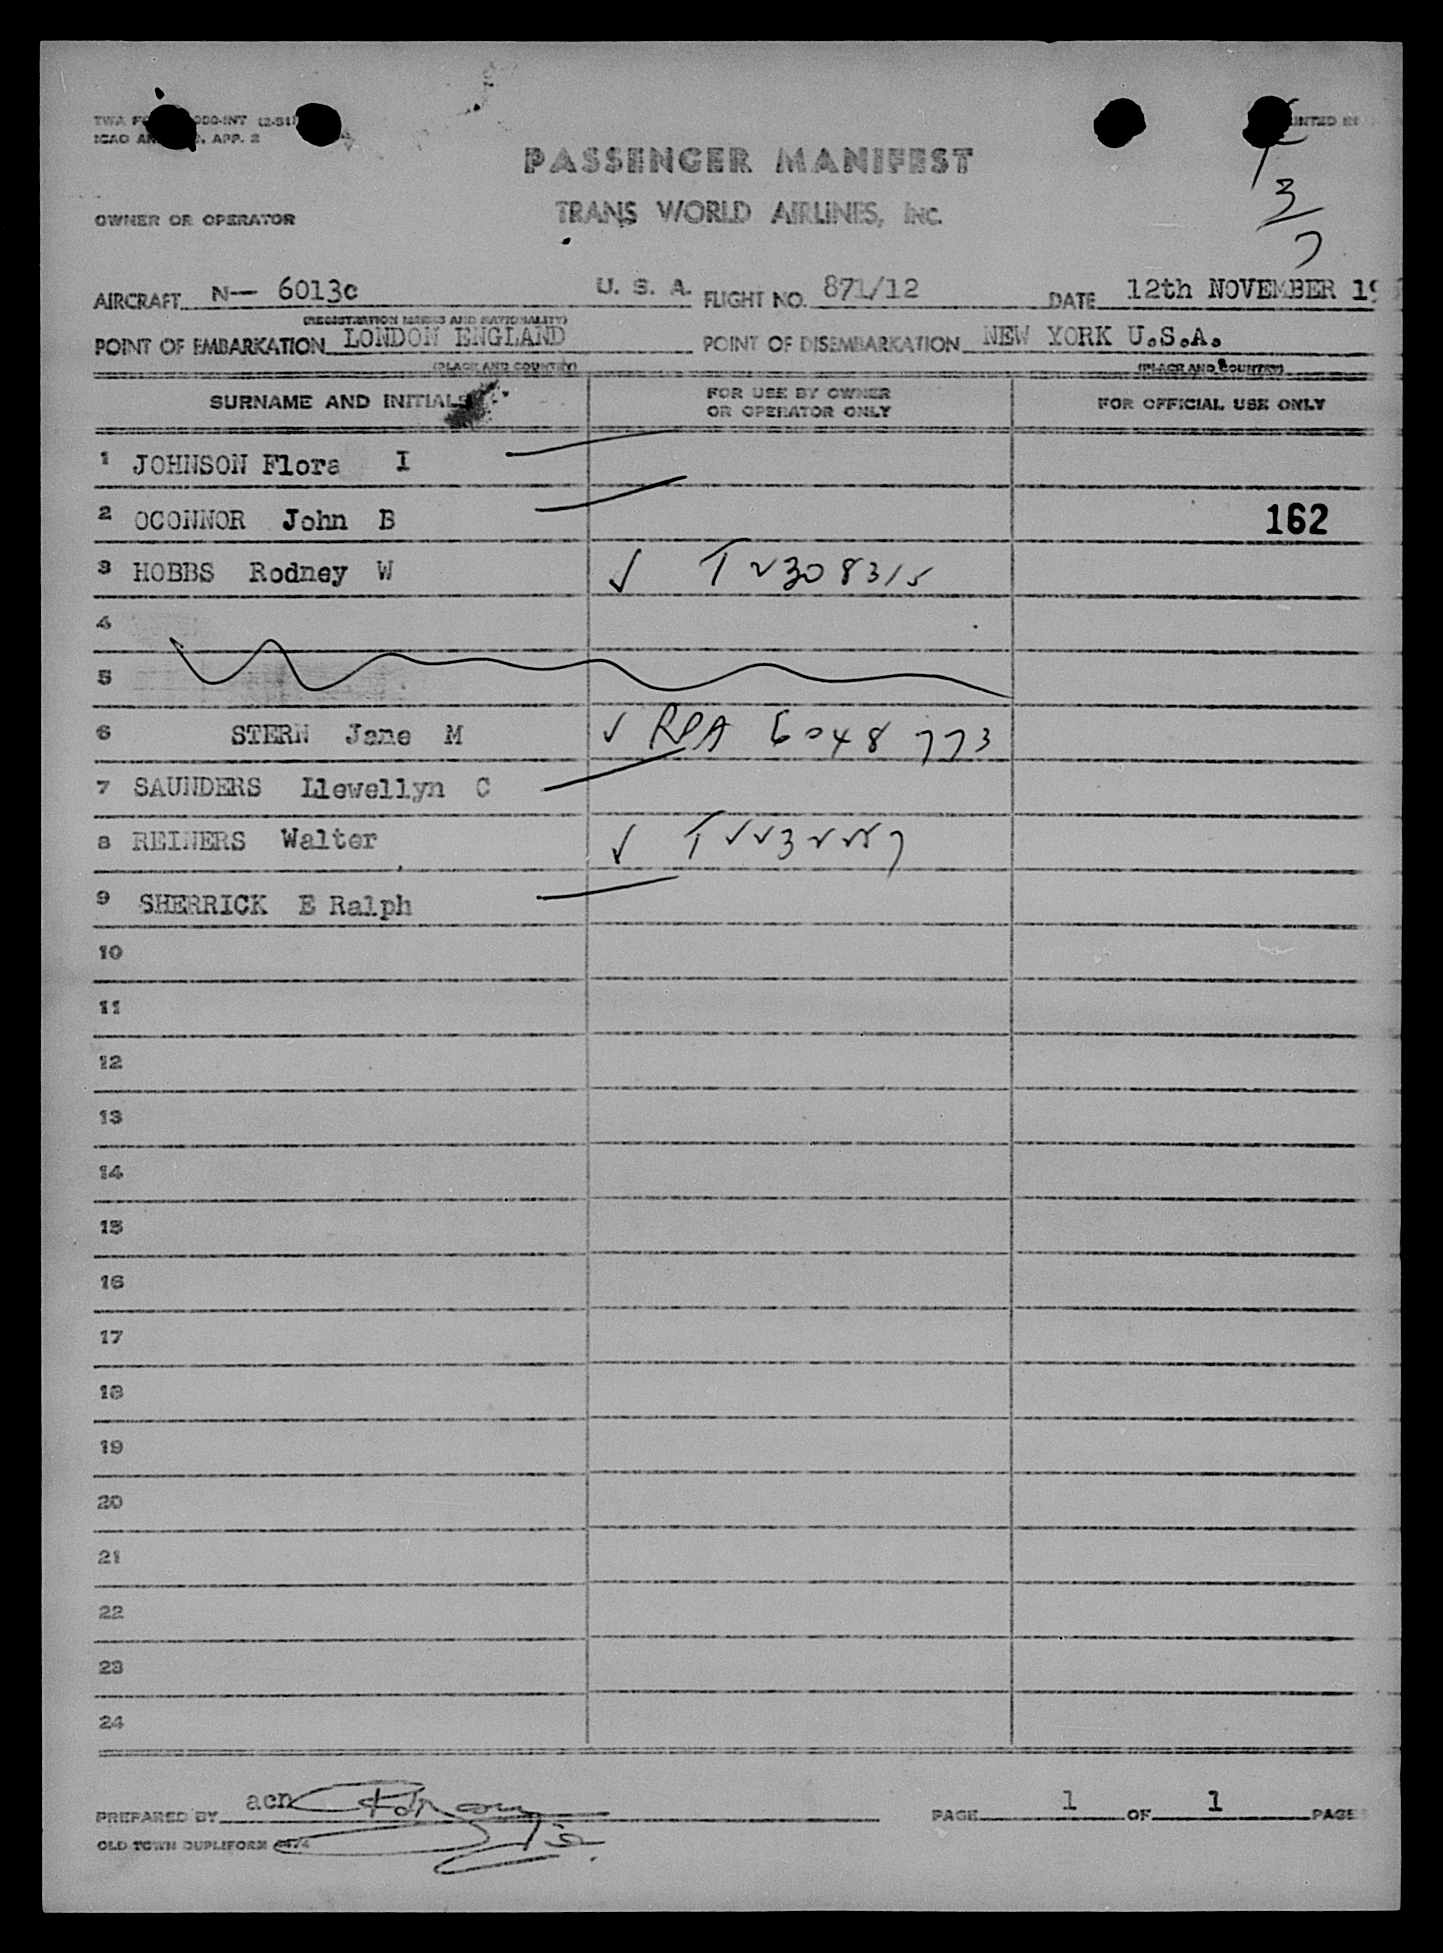 TWA 000-INT (2-51)
ICAO APP. 2
PASSENGER MANIFEST
OWNER OR OPERATOR TRANS WORLD AIRLINES, INC.
3
7
AIRCRAFT N— 6013c U. S. A. FLIGHT NO. 871/12 DATE 12th NOVEMBER
(REGISTRATION MARKS AND NATIONALITY)
POINT OF EMBARKATION LONDON ENGLAND POINT OF DISEMBARKATION NEW YORK U.S.A.
(PLACE AND COUNTRY) (PLACE AND COUNTRY)
SURNAME AND INITIALS FOR USE BY OWNER OR OPERATOR ONLY FOR OFFICIAL USE ONLY
1 JOHNSON Flora I
2 OCONNOR John B 162
3 HOBBS Rodney W ✓ T 2308315
4
5
6 STERN Jane M ✓ RPA 6048773
7 SAUNDERS Llewellyn C
8 REINERS Walter ✓
9 SHERRICK E Ralph
10
11
12
13
14
15
16
17
18
19
20
21
22
23
24
PREPARED BY acn PAGE 1 OF 1 PAGES
OLD TOWN DUPLIFORM